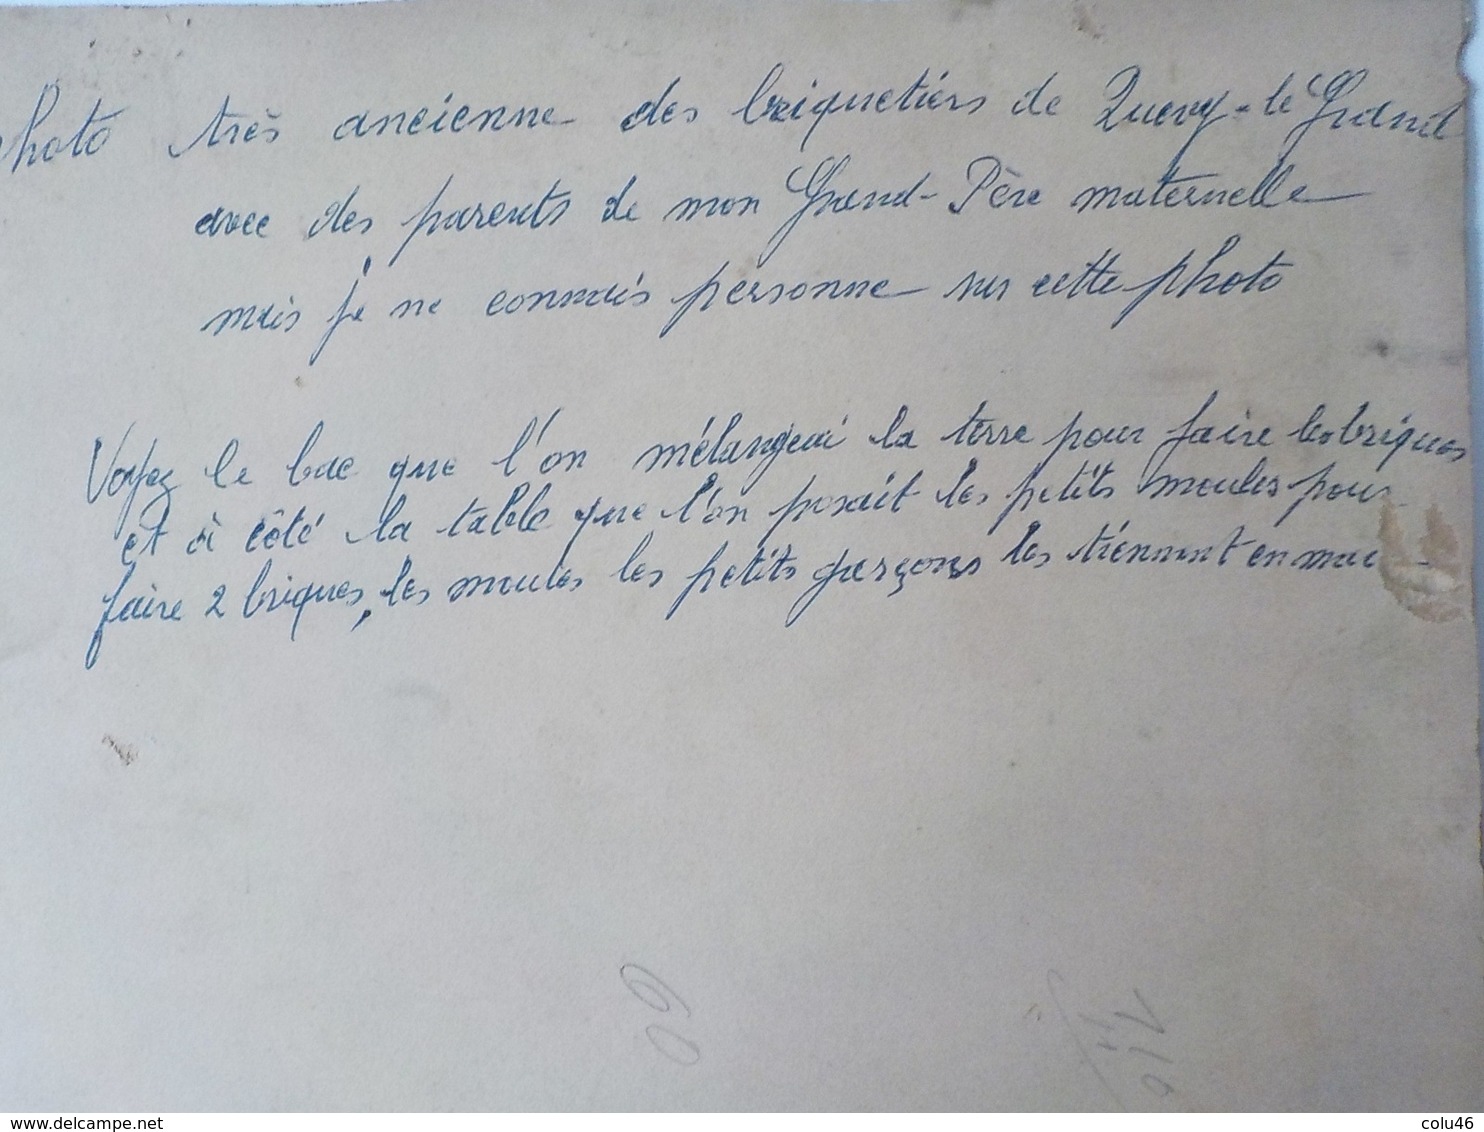 Photo très ancienne des briquetiérs de Quevy-le Grand
avec des parents de mon Grand-Père maternelle
mais je ne connais personne sur cette photo
Voyez le bac que l'on mélangeai la terre pour faire les briques
et à côté la table que l'on posait les petits moules pour
faire 2 briques, les moules les petits garçons les tiénnent en mai
60
www.delcampe.net
colu46